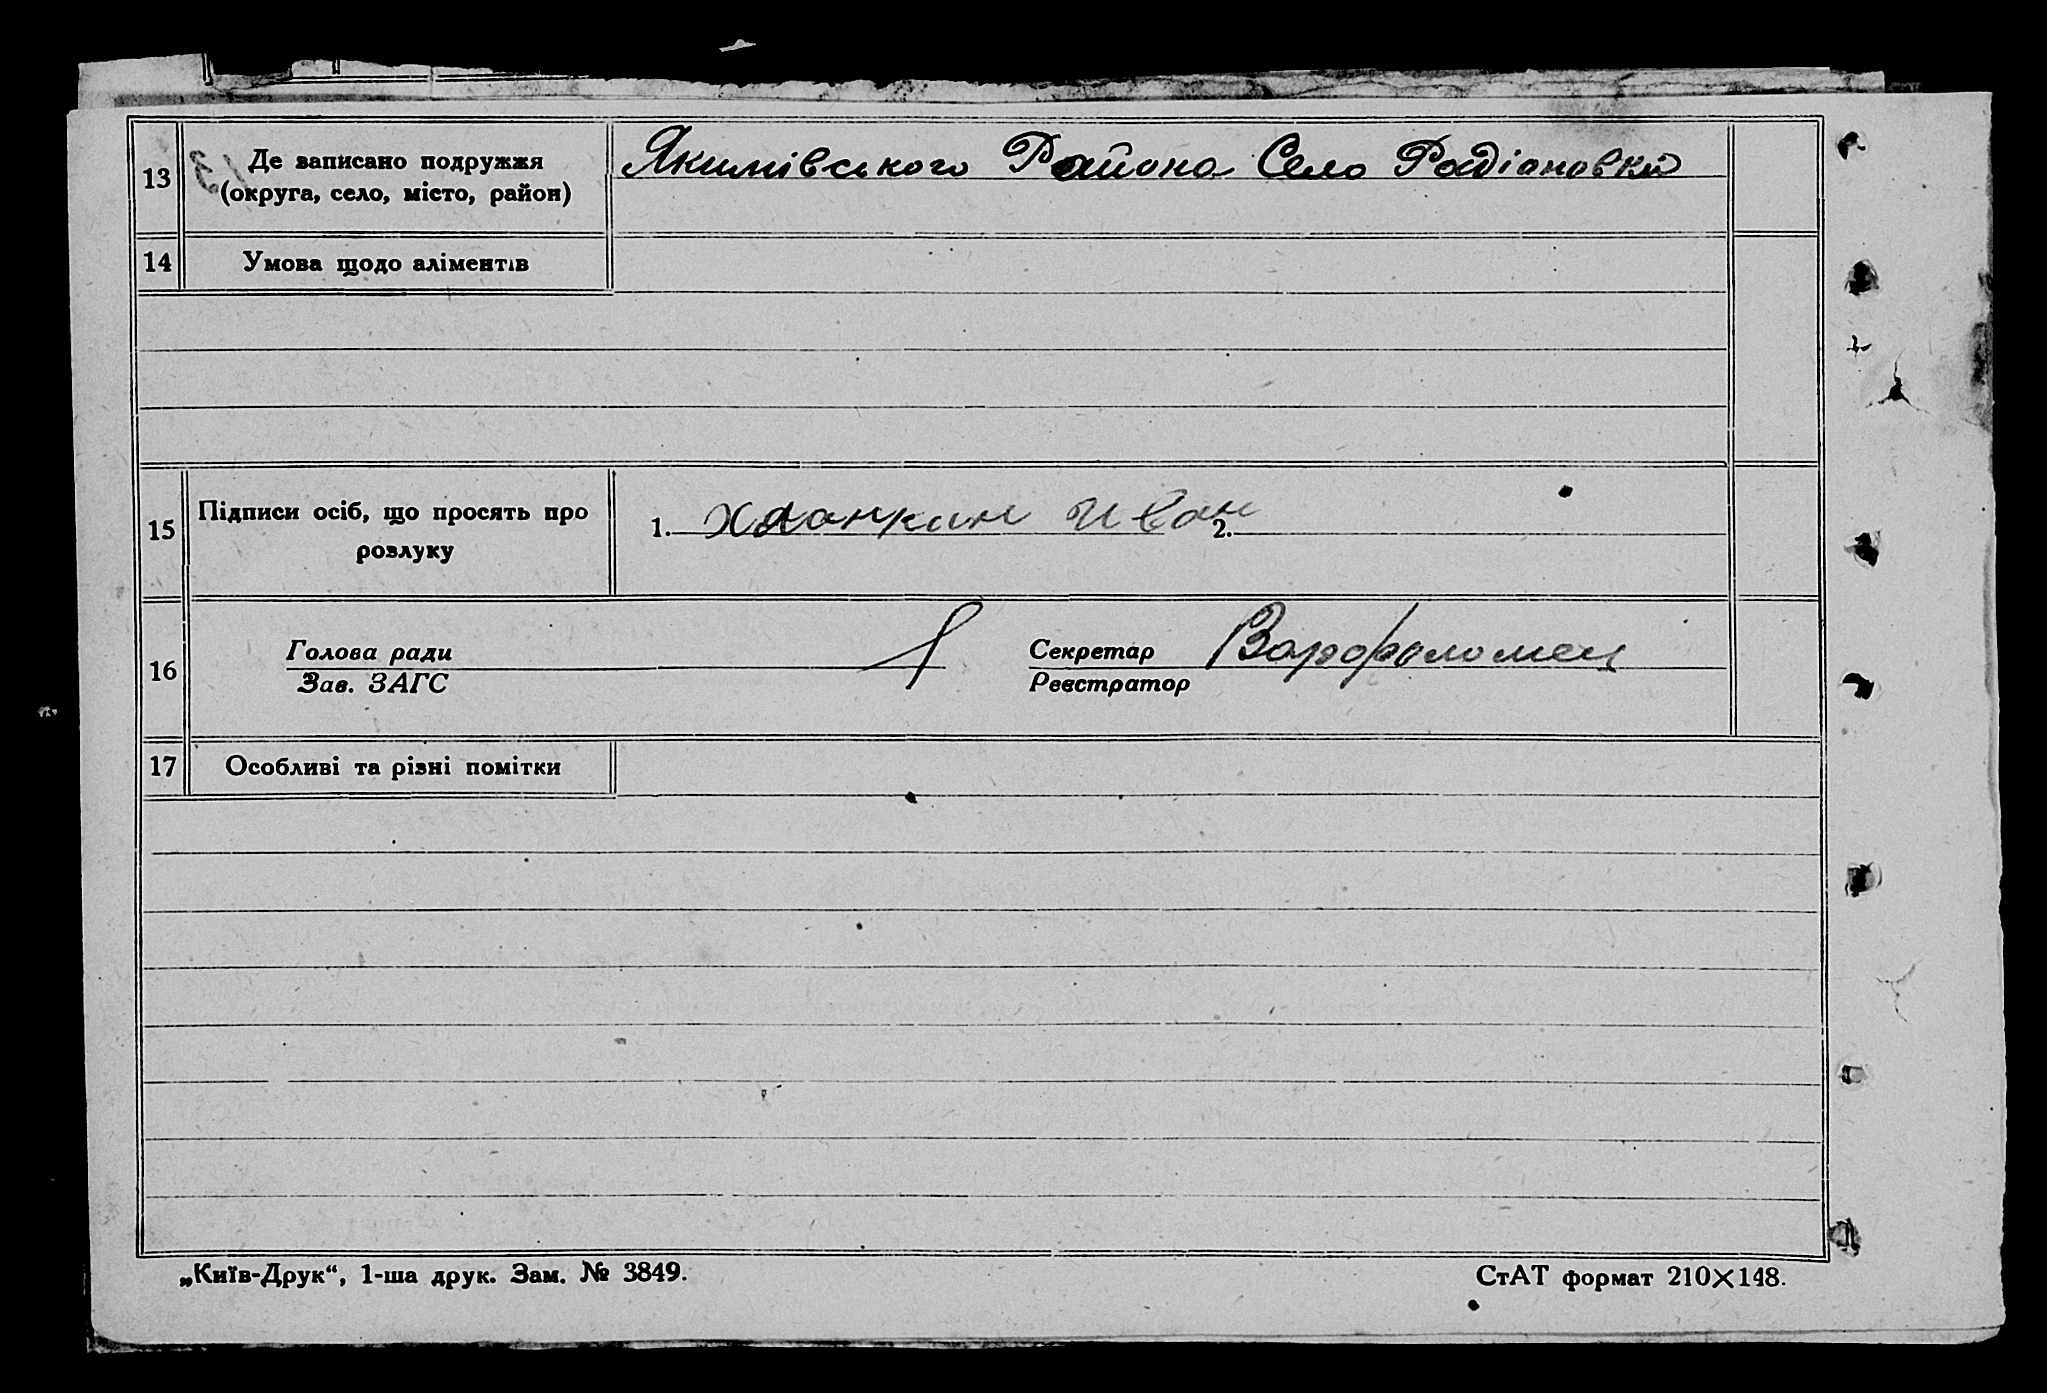 13 Де записано подружжя
(округа, село, місто, район) Якимівського Района Село Радіановка
14 Умова щодо аліментів
15 Підписи осіб, що просять про
розлуку 1. Иван 2.
16 Голова ради Секретар Варфоломеи
Зав. ЗАГС Реєстратор
17 Особливі та різні помітки
„Київ-Друк“, 1-ша друк. Зам. № 3849. СтАТ формат 210×148.